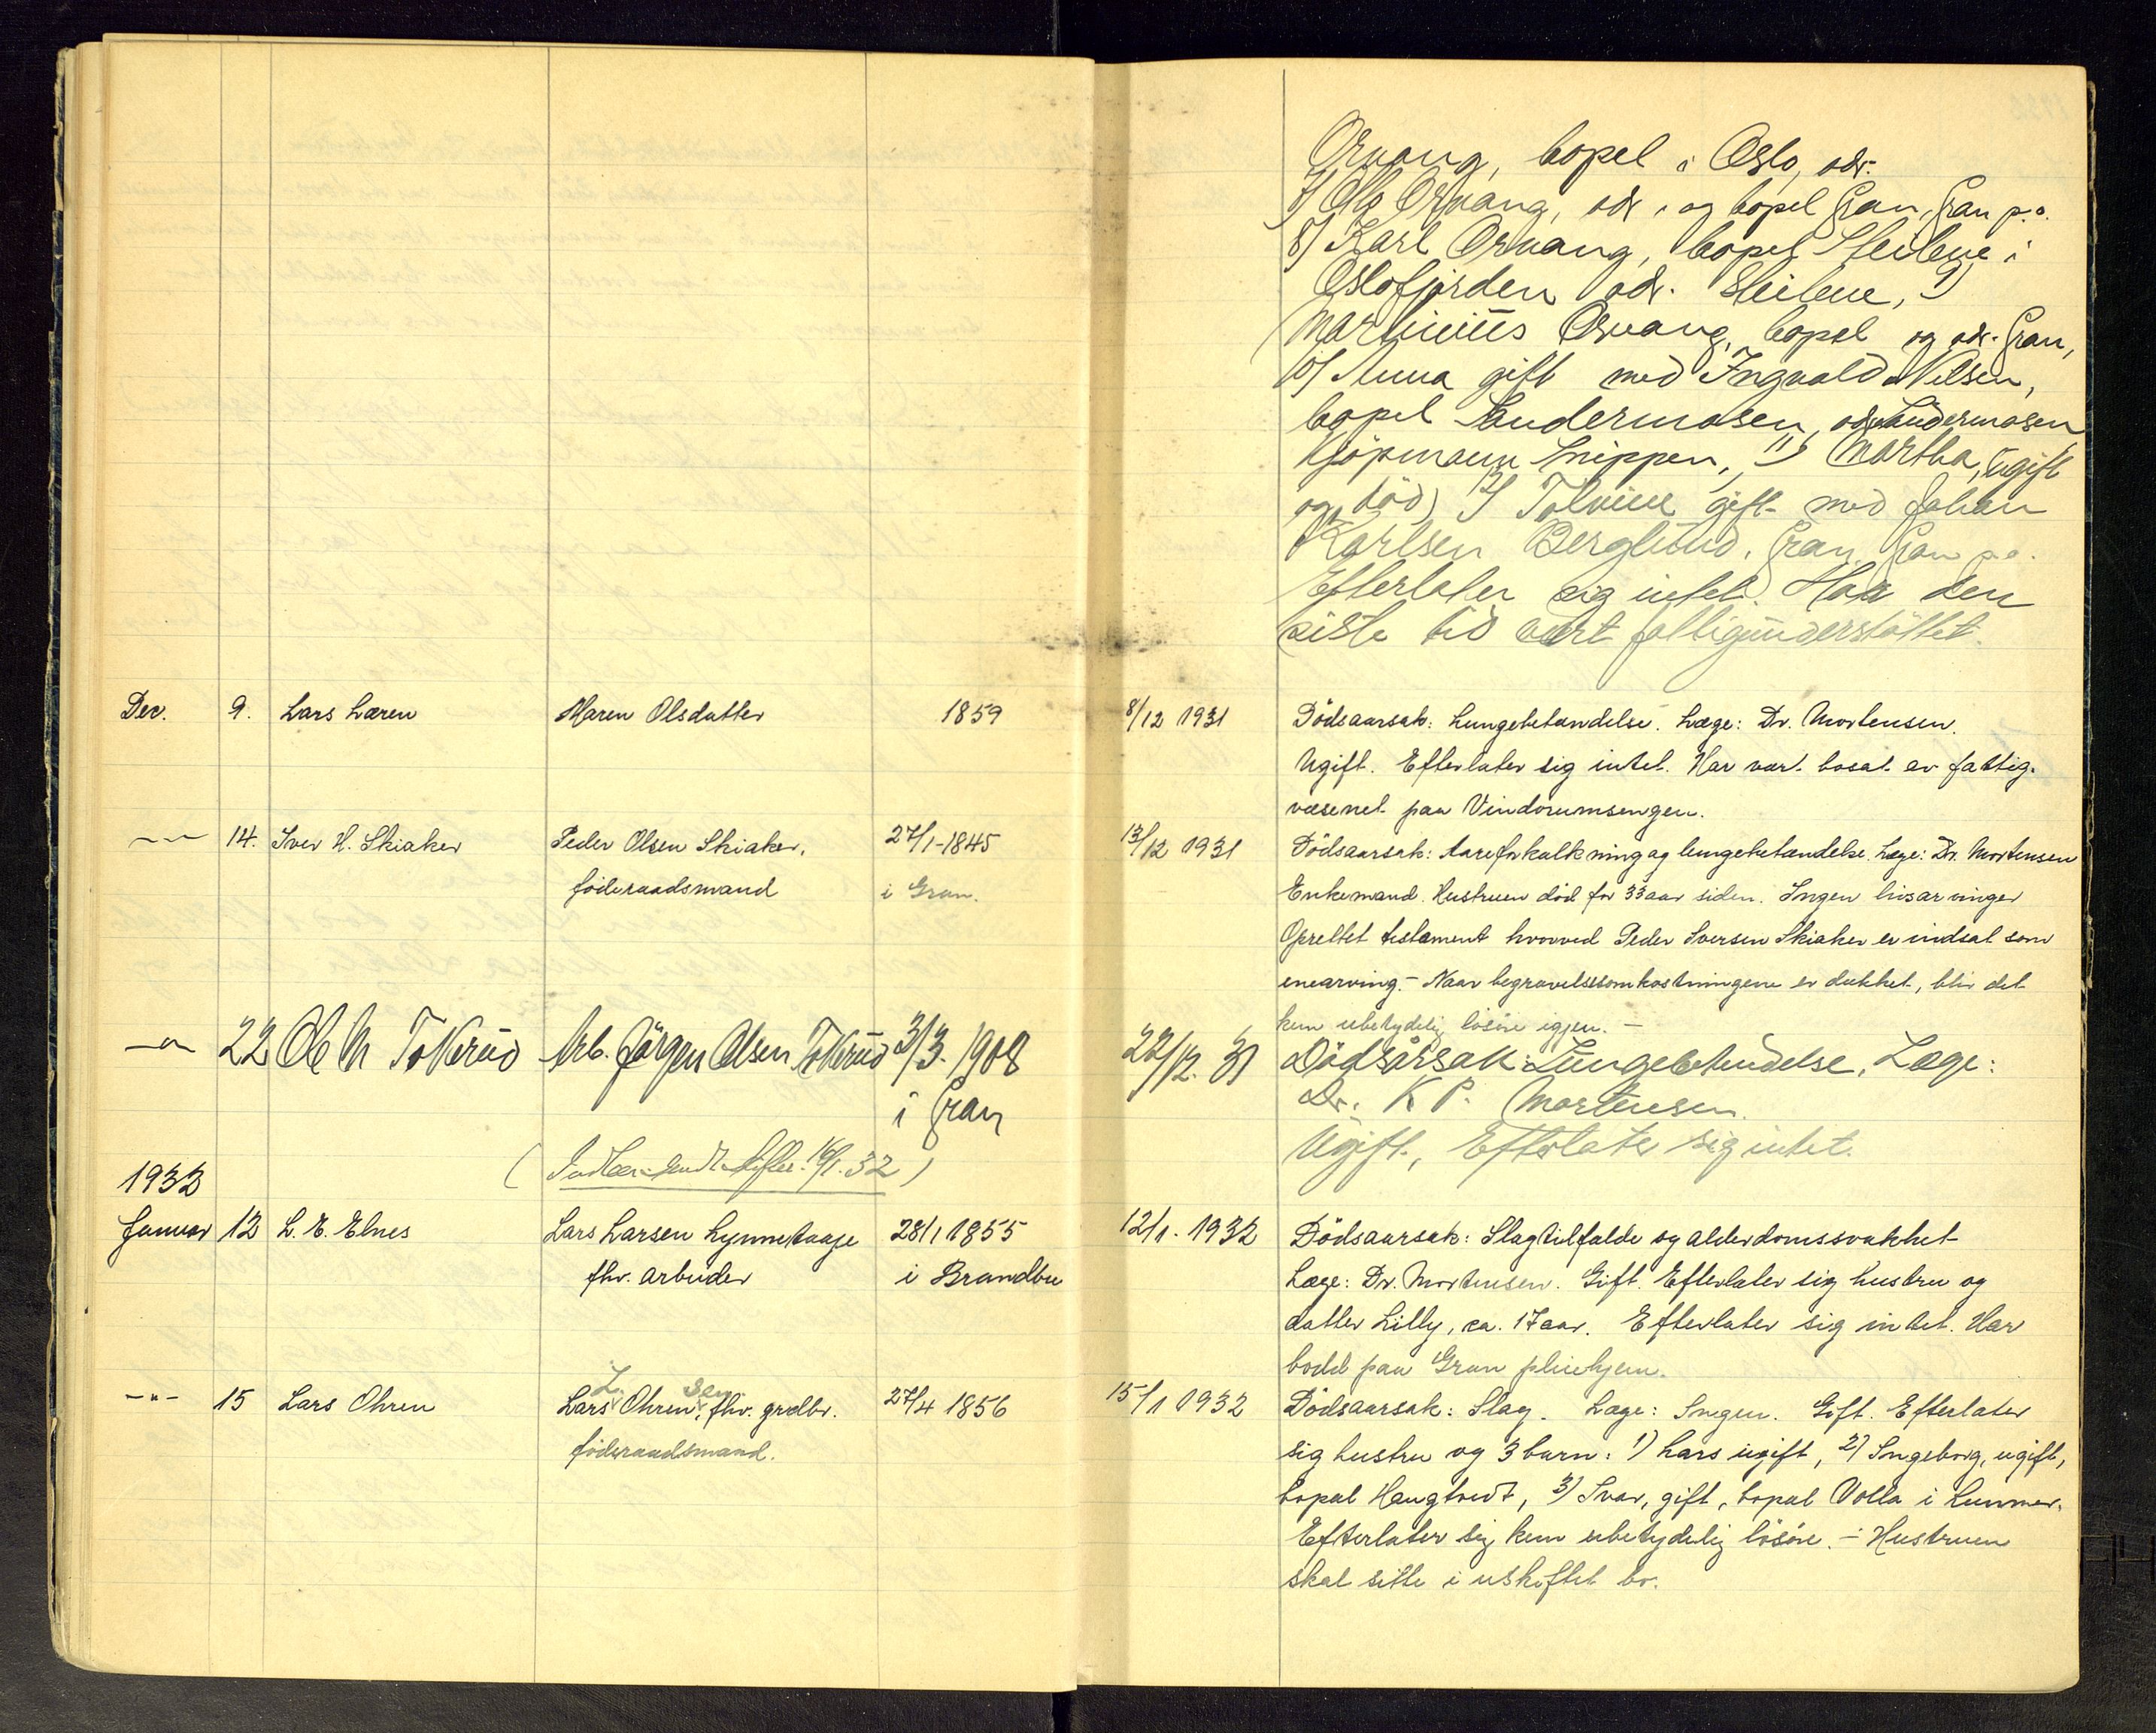 Orvang, bopel i Oslo, adr.
7) Ole Orvang, adr. og bopel Gran, Gran p.o.
8) Karl Orvang, bopel Steilene i
Oslofjorden adr. Steilene, 9)
Martinius Orvang, bopel og adr. Gran,
10) Anna gift med Ingvald Nilsen,
bopel Sandermosen, adr. Sandermosen
Kjöpmann Snippen, 11) Martha, ugift
og död, Tolvine gift med Johan
Karlsen Berglund, Gran, Gran p.o.
Efterlater sig intet. Har den
siste tid vært fattigunderstöttet.
Dec. 9. Lars Læren Maren Olsdatter 1859 8/12 1931 Dödsaarsak: Lungebetændelse. Læge: Dr. Mortensen.
Ugift. Efterlater sig intet. Har vært bosat av fattig-
væsenet paa Vindorumsengen.
-"- 14. Iver H. Skiaker Peder Olsen Skiaker, 27/1-1845 13/12 1931 Dödsaarsak: Aareforkalkning og lungebetændelse. Læge: Dr. Mortensen
föderaadsmand i Gran. Enkemand. Hustruen död for 33 aar siden. Ingen livsarvinger
Oprettet testament hvorved Peder Iversen Skiaker er indsat som
enearving. - Naar begravelsesomkostningene er dækket, blir det
kun ubetydelig lösöre igjen. -
-"- 22 Ole M Tokerud Arb. Jörgen Olsen Tokerud 3/3. 1908 22/12. 31 Dödsårsak: Lungebetendelse, Læge:
i Gran Dr. K P. Mortensen.
Ugift, Efterlater sig intet.
( 16/1. 32 )
1932
Januar 12 L. E. Elnes Lars Larsen Lynnetaaje 28/1 1855 12/1. 1932 Dödsaarsak: Slagtilfælde og alderdomssvakhet
fhv. arbeider i Brandbu Læge: Dr. Mortensen. Gift. Efterlater sig hustru og
datter Lilly, ca. 17 aar. Efterlater sig intet. Har
bodd paa Gran pleiehjem.
L. sen
-"- 15 Lars Ohren Lars Ohren, fhv. grdbr. 27/4 1856 15/1 1932 Dödsaarsak: Slag. Læge: Ingen. Gift. Efterlater
föderaadsmand. sig hustru og 3 barn: 1) Lars ugift, 2) Ingeborg, ugift,
bopæl Haugtvedt, 3) Ivar, gift, bopæl Volla i Lunner.
Efterlater sig kun ubetydelig lösöre. - Hustruen
skal sitte i uskiftet bo.